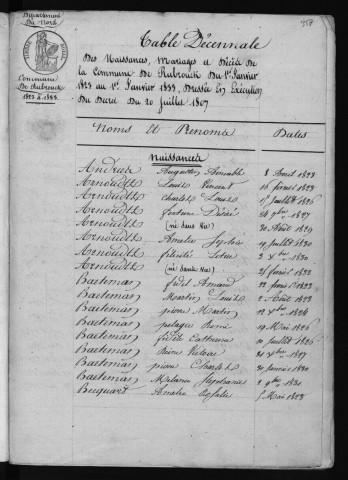 Département
du Nord
Commune
De Rubrouck
1823 à 1833
Table Décennale
Des Naissances, Mariages et Décès De
la Commune De Rubrouck Du 1er Janvier
1823 au 1er Janvier 1833, Dressée En Exécution
Du Décret Du 20 Juillet 1807
Noms et Prénoms Dates
Naissances
Andries Augustin Aimable 8 Avril 1823
Arnoudts Louis Vincent 16 février 1823
Arnoudts Charles Louis 15 Juillet 1826
Arnoudts fortuné Désiré 1827
Arnoudts (né sans vie) 30 Août 1829
Arnoudts Amélie Sophie 19 Juillet 1830
Arnoudts félicité 1830
Arnoudts (né sans vie) 21 février 1832
Baeteman fidel Amand 22 février 1823
Baeteman Martin Louis 2 Août 1823
Baeteman pierre Martin 1824
Baeteman pélagie 19 Mai 1826
Baeteman Catherine 10 Juillet 1826
Baeteman Reine Victoire 1827
Baeteman pierre Charles 30 Janvier 1830
Baeteman Mélanie Stéphanie 1831
Becquart Amélie Rosalie 5 Mai 1823